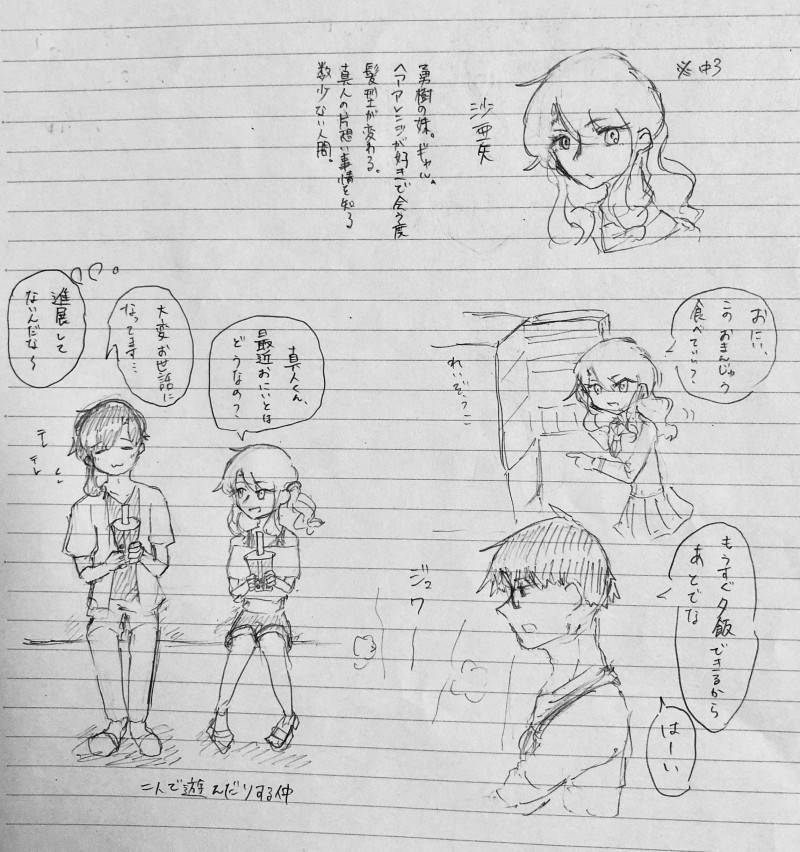 ※中3
沙亜矢
勇樹の妹。ギャル。
ヘアアレンジが好きで会う度
髪型が変わる。
真人の片想い事情を知る
数少ない人間。
おにい、
このおまんじゅう
食べてい?
れいぞうこ
もうすぐ夕飯できるから
あとでな
はーい
ジュワー
真人くん、
最近おにいとは
どうなの?
大変お世話に
なってます…
進展して
ないんだな〜
テレ
テレ
二人で遊んだりする仲